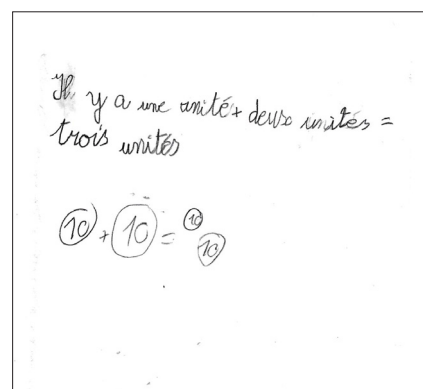 Il y a une unité + deux unités =
trois unités
10 + 10 = 10
10